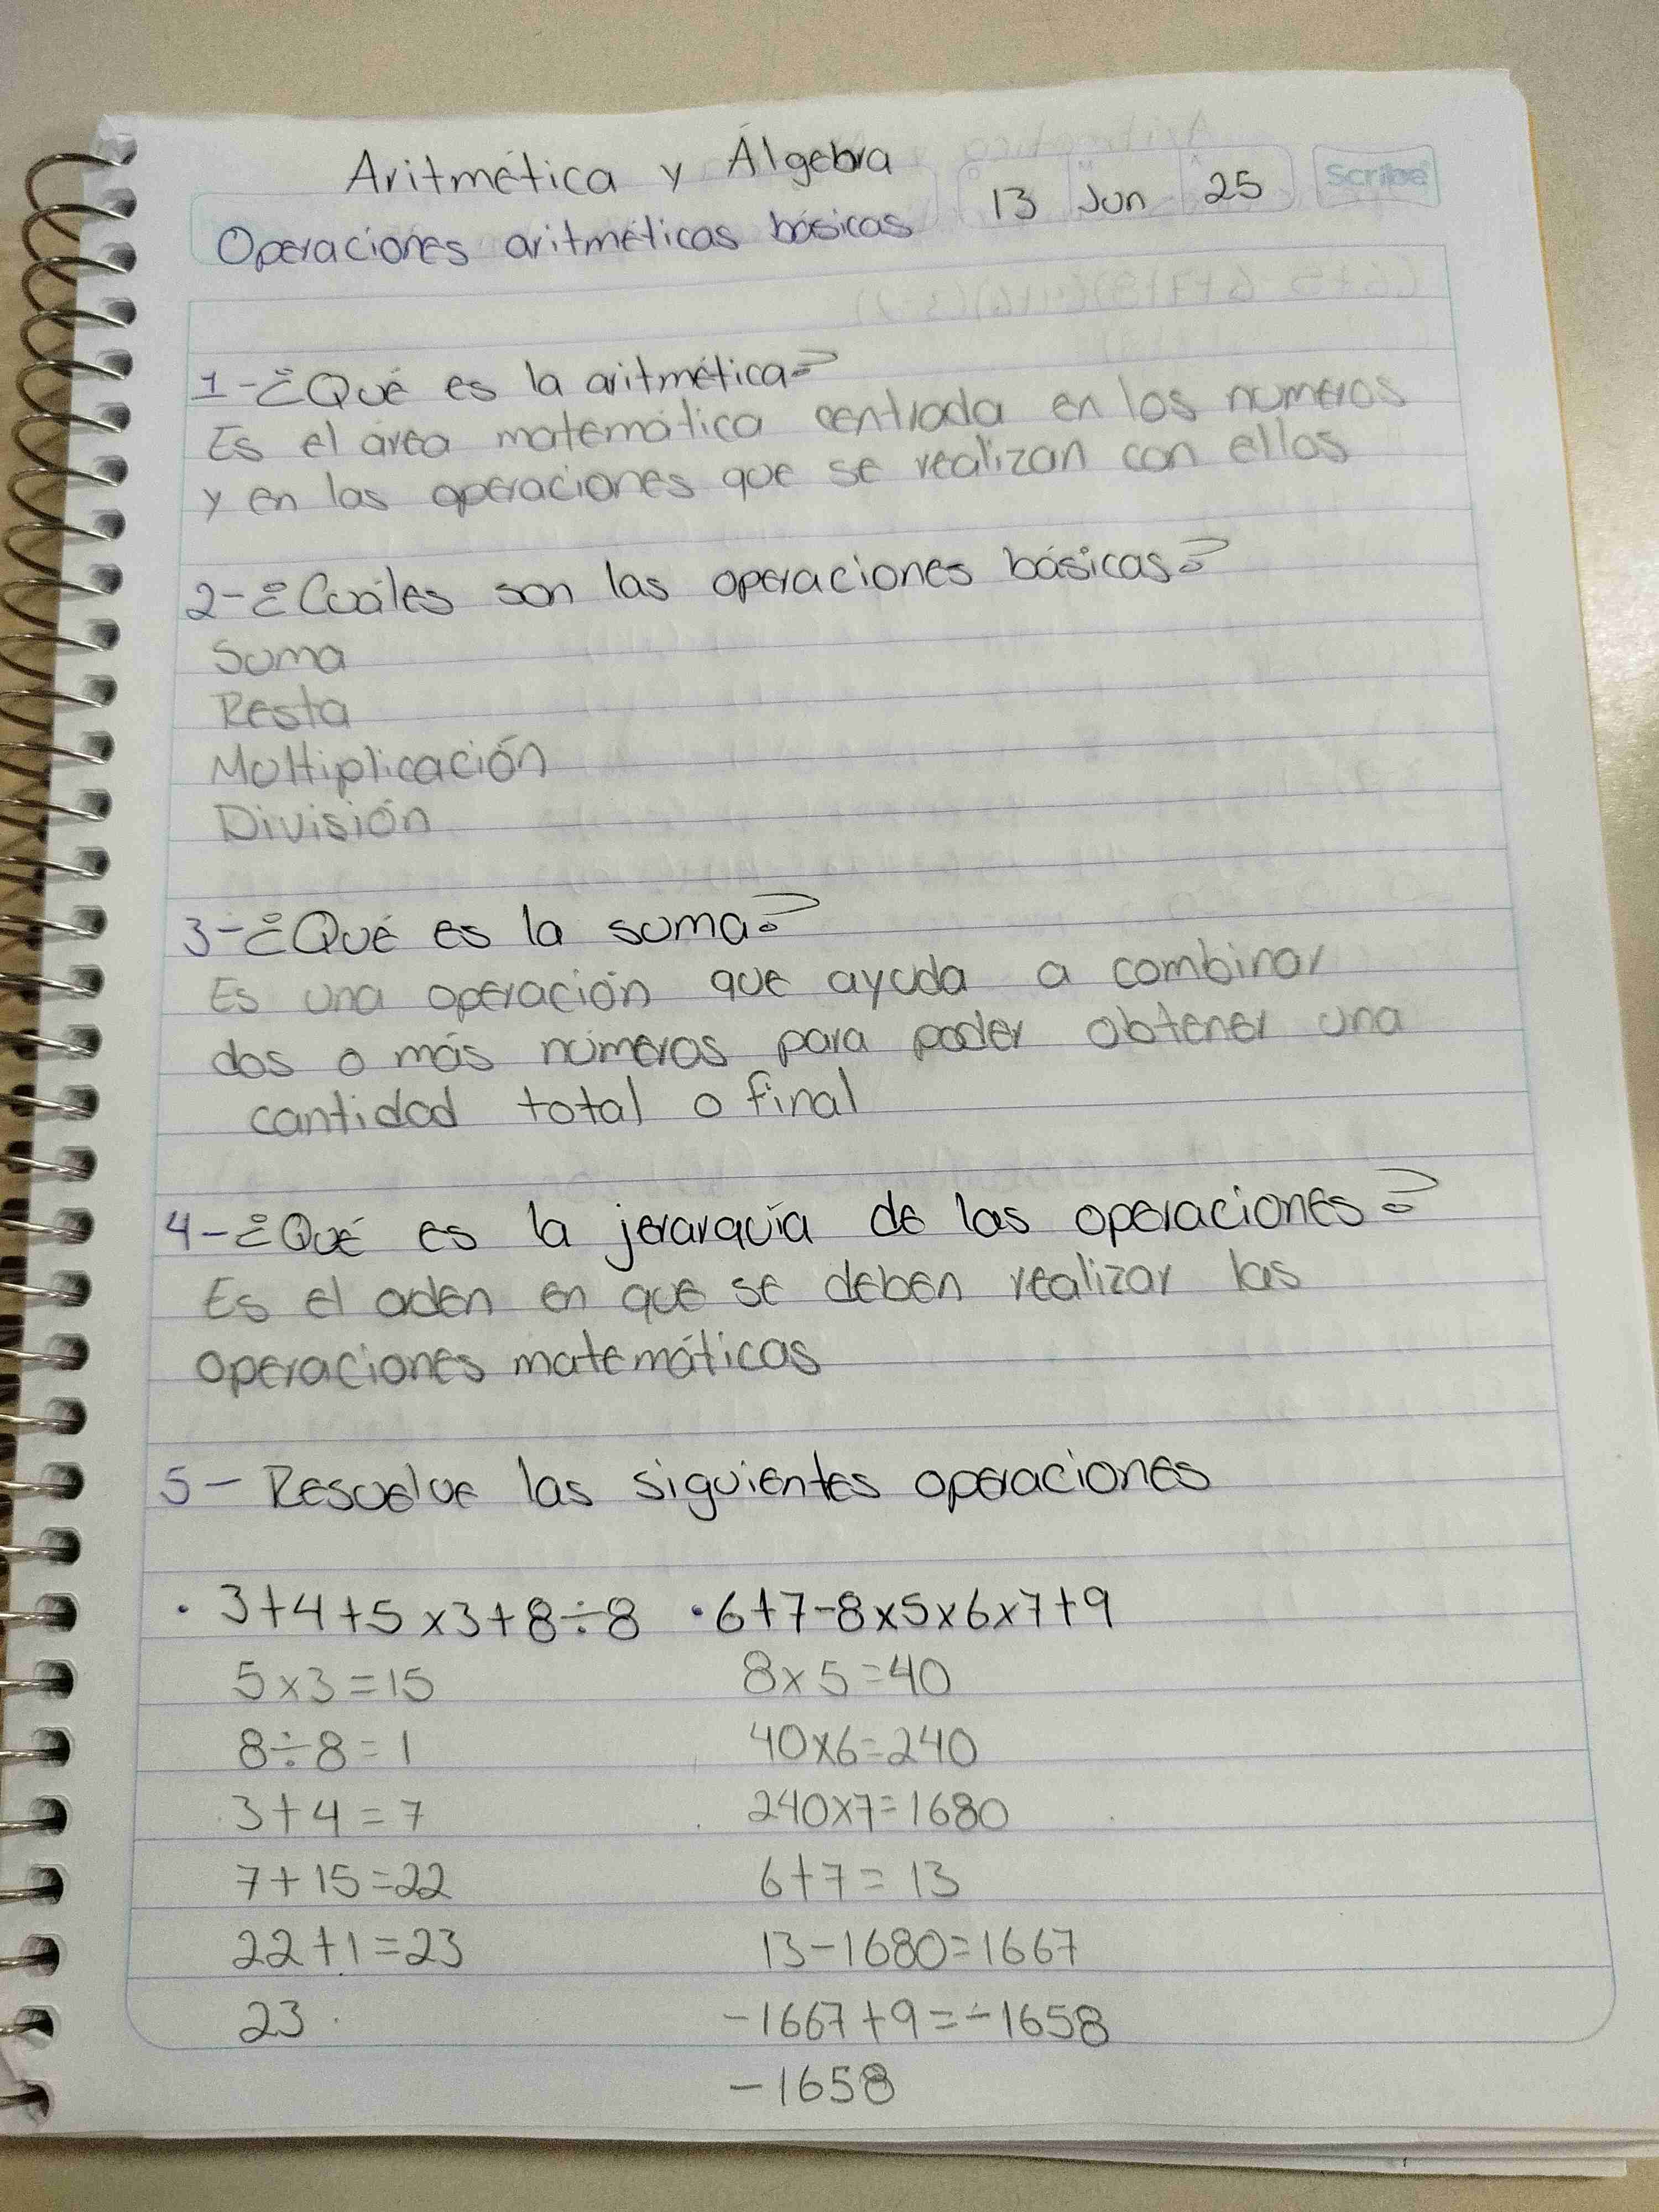 Aritmética y Álgebra
13 Jun 25
Scribe
Operaciones aritméticas básicas
1-¿Qué es la aritmética?
Es el área matemática centrada en los números
y en las operaciones que se realizan con ellos
2-¿Cuáles son las operaciones básicas?
Suma
Resta
Multiplicación
División
3-¿Qué es la suma?
Es una operación que ayuda a combinar
dos o más números para poder obtener una
cantidad total o final
4-¿Qué es la jerarquía de las operaciones?
Es el orden en que se deben realizar las
operaciones matemáticas
5- Resuelve las siguientes operaciones
• 3+4+5x3+8÷8 • 6+7-8x5x6x7+9
5x3=15 8x5=40
8÷8=1 40x6=240
3+4=7 240x7=1680
7+15=22 6+7=13
22+1=23 13-1680=1667
23 -1667+9=-1658
-1658